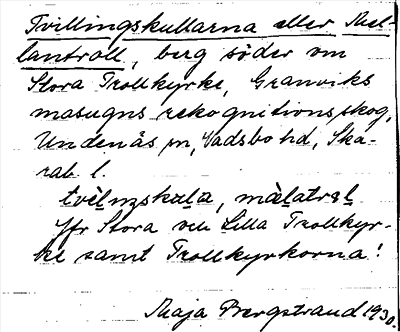 Tvillingskullarna eller Mel-
lantroll, berg söder om
Stora Trollkyrke, Granviks
masugns rekognitionsskog,
Undenäs sn, Vadsbo hd, Ska-
rab. l.
Jfr Stora och Lilla Trollkyr-
ke samt Trollkyrkorna!
Maja Bergstrand 1930.